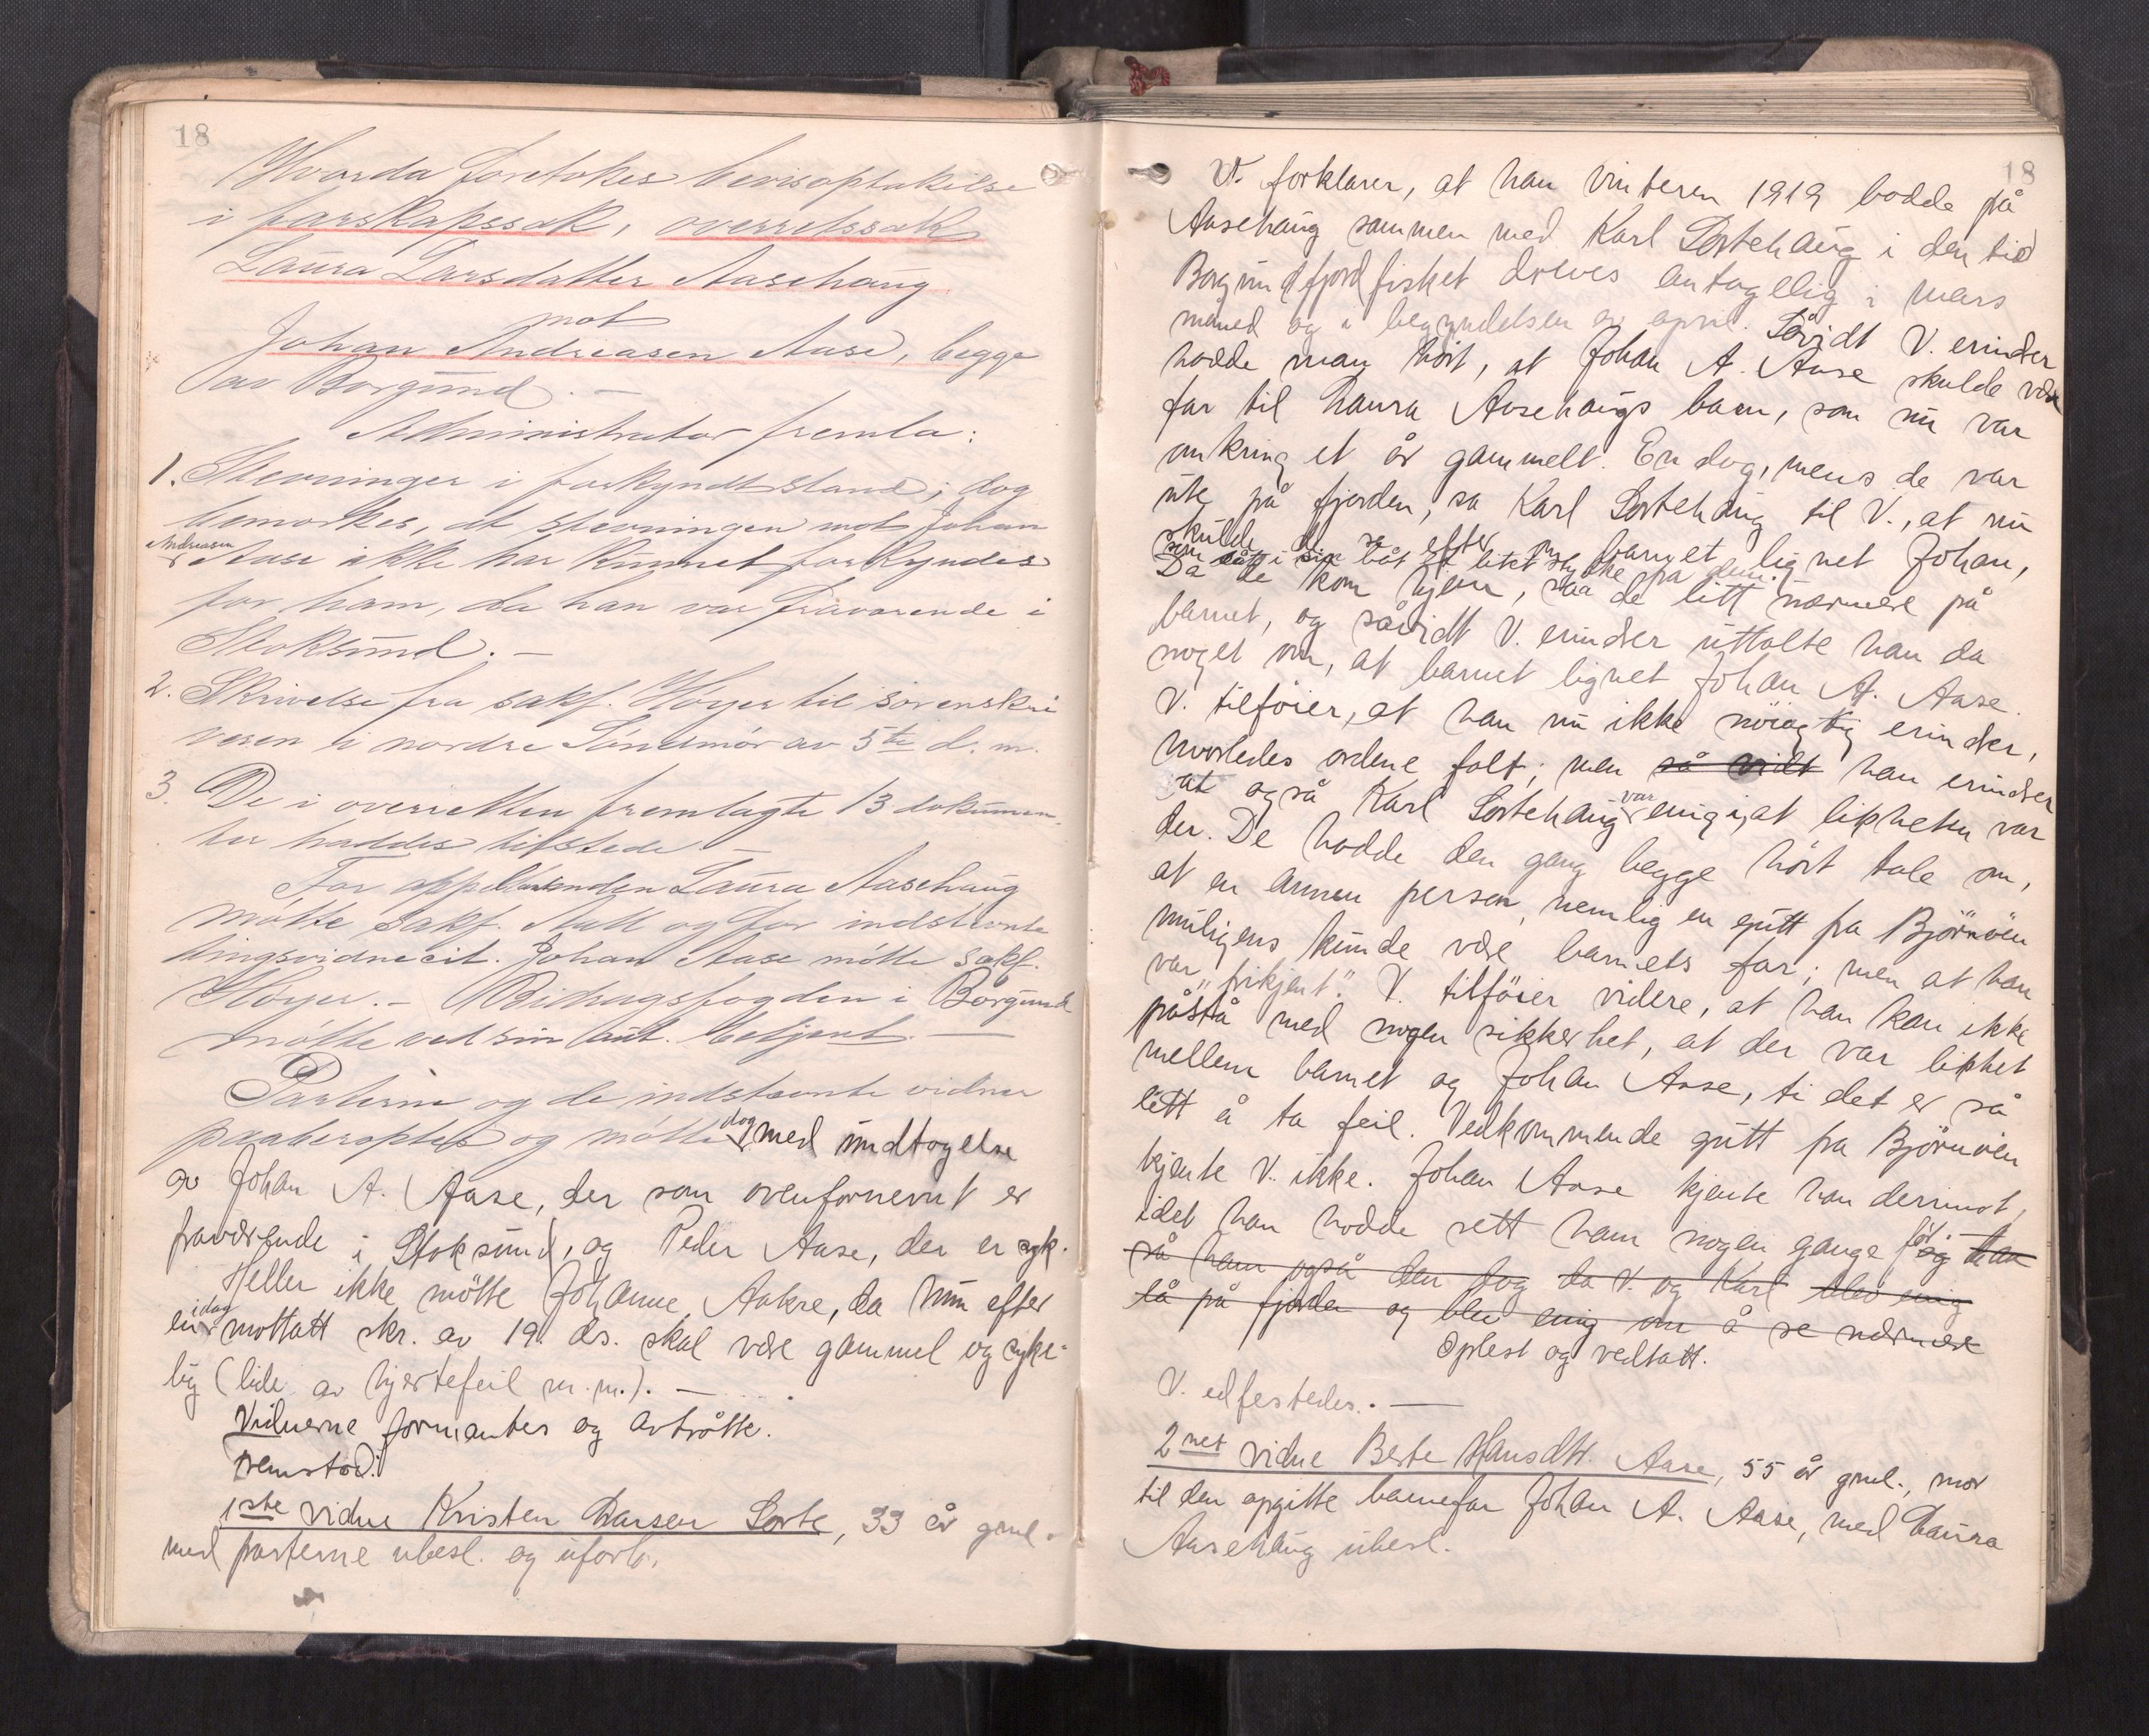 18
Hvorda foretokes bevisoptakelse
i farskapssak, overretssak
Laura Larsdatter Aasehaug
mot
Johan Andreasen Aase, begge
av Borgund. -
Administrator fremla:
1. Stevninger i forkyndt stand; dog
bemerkes, at stevningen mot Johan
Andreasen
Aase ikke har kunnet forkyndes
for ham, da han var fraværende i
Stoksund. -
2. Skrivelse fra sakf. Høyer til sorenskri
veren i nordre Söndmör av 5te d. m.
3. De i overretten fremlagte 13 dokumen-
ter haddes tilstede -
For appellantinden Laura Aasehaug
møtte sakf. og for indstevnte
tingsvidnecit. Johan Aase møtte sakf.
Høyer. - Bidragsfogden i Borgund
møtte ved sin aut. betjent. -
Parterne og de indstevnte vidner
dog
paaberoptes og møtte med undtagelse
av Johan A. Aase, der som ovenfornevnt er
fraværende i Stoksund, og Peder Aase, der er syk.
Heller ikke møtte Johanne Aakre, da hun efter
idag
en mottatt skr. av 19. ds. skal være gammel og syke-
lig (lide av hjertefeil m.m.). -
Vidnerne formantes og avtrådte.
Fremstod:
1ste vidne Kristen Larsen Sorte, 33 år gml.
med parterne ubesl. og uforb.
18
V. forklarer, at han vinteren 1919 bodde på
Aasehaug sammen med Karl Sortehaug i den tid
Borgundfjordfisket dreves antagelig i mars
måned og i begyndelsen av april. Såvidt V. erindrer
hadde man hørt, at Johan A. Aase skulde være
far til Laura Aasehaugs barn, som nu var
omkring et år gammelt. En dag, mens de var
ute på fjorden, sa Karl Sortehaug til V., at nu
skulde de se efter om barnet lignet Johan,
som i sin båt et litet stykke fra dem.
Da de kom hjem, saa de litt nærmere på
barnet, og såvidt V. erindrer uttalte han da
noget om, at barnet lignet Johan A. Aase.
V. tilföier, at han nu ikke nöiagtig erindrer,
hvorledes ordene falt; men så vidt han erindrer
var
at også Karl Sortehaug enig i, at likheten var
der. De hadde den gang begge hört tale om,
at en annen person, nemlig en gutt fra Björnöen
muligens kunde være barnets far; men at han
var "frikjent". V. tilföier videre, at han kan ikke
påstå med nogen sikkerhet, at der var likhet
mellem barnet og Johan Aase, ti det er så
lett å ta feil. Vedkommende gutt fra Björnöen
kjente V. ikke. Johan Aase kjente han derimot,
idet han hadde sett ham nogen gange för. - og han
så ham også den dag da V. og Karl blev enig
lå på fjorden og blev enig om å se nærmere
Oplest og vedtatt.
V. edfestedes. -
2net vidne Berte Hansdtr. Aase, 55 år gml., mor
til den opgitte barnefar Johan A. Aase, med Laura
Aasehaug ubesl.